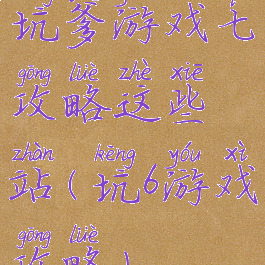 坑爹游戏七
gōng lüè zhè xiē
攻略这些
zhàn kēng yóu xì
站(坑6游戏
gōng lüè
攻略)